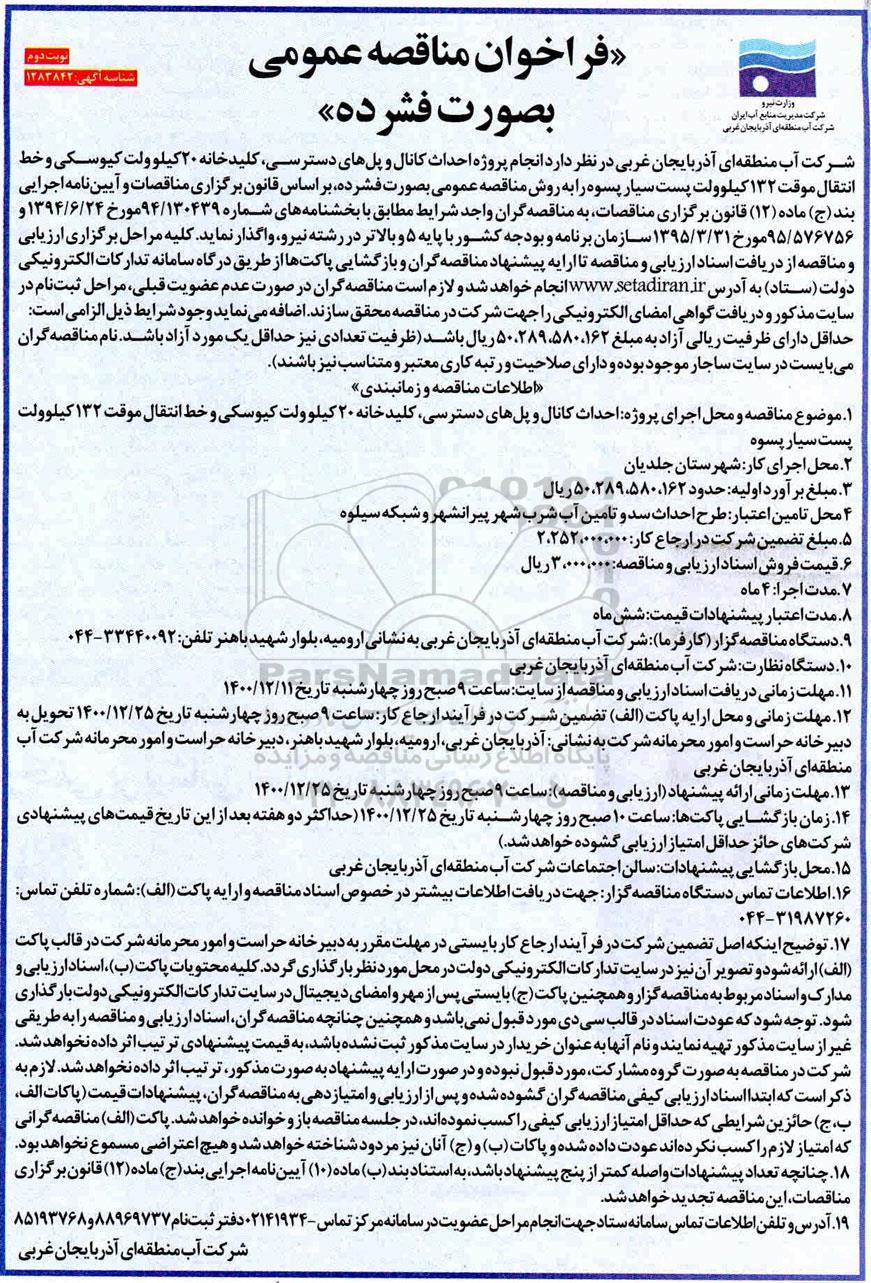 «فراخوان مناقصه عمومی
بصورت فشرده»
نوبت دوم
شناسه آگهی: ۱۲۸۳۸۴۲
وزارت نیرو
شرکت مدیریت منابع آب ایران
شرکت آب منطقه‌ای آذربایجان غربی
شرکت آب منطقه‌ای آذربایجان غربی در نظر دارد انجام پروژه احداث کانال و پل‌های دسترسی، کلیدخانه ۲۰کیلوولت کیوسکی و خط
انتقال موقت ۱۳۲ کیلوولت پست سیار پسوه را به روش مناقصه عمومی بصورت فشرده، بر اساس قانون برگزاری مناقصات و آیین‌نامه اجرایی
بند (ج) ماده (۱۲) قانون برگزاری مناقصات، به مناقصه‌گران واجد شرایط مطابق با بخشنامه‌های شماره ۹۴/۱۳۰۴۳۹مورخ ۱۳۹۴/۶/۲۴ و
۹۵/۵۷۶۷۵۶مورخ ۱۳۹۵/۳/۳۱ سازمان برنامه و بودجه کشور با پایه ۵ و بالاتر در رشته نیرو، واگذار نماید. کلیه مراحل برگزاری ارزیابی
و مناقصه از دریافت اسناد ارزیابی و مناقصه تا ارایه پیشنهاد مناقصه‌گران و بازگشایی پاکت‌ها از طریق درگاه سامانه تدارکات الکترونیکی
دولت (ستاد) به آدرس www.setadiran.ir انجام خواهد شد و لازم است مناقصه‌گران در صورت عدم عضویت قبلی، مراحل ثبت‌نام در
سایت مذکور و دریافت گواهی امضای الکترونیکی را جهت شرکت در مناقصه محقق سازند. اضافه می‌نماید وجود شرایط ذیل الزامی است:
حداقل دارای ظرفیت ریالی آزاد به مبلغ ۵۰،۲۸۹،۵۸۰،۱۶۲ ریال باشد (ظرفیت تعدادی نیز حداقل یک مورد آزاد باشد. نام مناقصه‌گران
می‌بایست در سایت ساجار موجود بوده و دارای صلاحیت و رتبه کاری معتبر و متناسب نیز باشند).
«اطلاعات مناقصه و زمانبندی»
۱.موضوع مناقصه و محل اجرای پروژه: احداث کانال و پل‌های دسترسی، کلیدخانه ۲۰ کیلوولت کیوسکی و خط انتقال موقت ۱۳۲ کیلوولت
پست سیار پسوه
۲.محل اجرای کار: شهرستان جلدیان
۳.مبلغ برآورد اولیه: حدود ۵۰،۲۸۹،۵۸۰،۱۶۲ ریال
۴.محل تامین اعتبار: طرح احداث سد و تامین آب شرب شهر پیرانشهر و شبکه سیلوه
۵.مبلغ تضمین شرکت در ارجاع کار: ۲،۲۵۲،۰۰۰،۰۰۰
۶.قیمت فروش اسناد ارزیابی و مناقصه: ۳،۰۰۰،۰۰۰ ریال
۷.مدت اجرا: ۴ ماه
۸.مدت اعتبار پیشنهادات قیمت: شش ماه
۹.دستگاه مناقصه‌گزار (کارفرما): شرکت آب منطقه‌ای آذربایجان غربی به نشانی ارومیه، بلوار شهید باهنر تلفن: ۳۳۴۴۰۰۹۲-۰۴۴
۱۰.دستگاه نظارت: شرکت آب منطقه‌ای آذربایجان غربی
۱۱.مهلت زمانی دریافت اسناد ارزیابی و مناقصه از سایت: ساعت ۹ صبح روز چهارشنبه تاریخ ۱۴۰۰/۱۲/۱۱
۱۲.مهلت زمانی و محل ارایه پاکت (الف) تضمین شرکت در فرآیند ارجاع کار: ساعت ۹ صبح روز چهارشنبه تاریخ ۱۴۰۰/۱۲/۲۵ تحویل به
دبیرخانه حراست و امور محرمانه شرکت به نشانی: آذربایجان غربی، ارومیه، بلوار شهید باهنر، دبیرخانه حراست و امور محرمانه شرکت آب
منطقه‌ای آذربایجان غربی
۱۳.مهلت زمانی ارائه پیشنهاد (ارزیابی و مناقصه): ساعت ۹ صبح روز چهارشنبه تاریخ ۱۴۰۰/۱۲/۲۵
۱۴.زمان بازگشایی پاکت‌ها: ساعت ۱۰ صبح روز چهارشنبه تاریخ ۱۴۰۰/۱۲/۲۵ (حداکثر دو هفته بعد از این تاریخ قیمت‌های پیشنهادی
شرکت‌های حائز حداقل امتیاز ارزیابی گشوده خواهد شد.)
۱۵.محل بازگشایی پیشنهادات: سالن اجتماعات شرکت آب منطقه‌ای آذربایجان غربی
۱۶.اطلاعات تماس دستگاه مناقصه‌گزار: جهت دریافت اطلاعات بیشتر در خصوص اسناد مناقصه و ارایه پاکت (الف): شماره تلفن تماس:
۰۴۴-۳۱۹۸۷۲۶۰
۱۷. توضیح اینکه اصل تضمین شرکت در فرآیند ارجاع کار بایستی در مهلت مقرر به دبیرخانه حراست و امور محرمانه شرکت در قالب پاکت
(الف) ارائه شود و تصویر آن نیز در سایت تدارکات الکترونیکی دولت در محل مورد نظر بارگذاری گردد. کلیه محتویات پاکت (ب)، اسناد ارزیابی و
مدارک و اسناد مربوط به مناقصه گزار و همچنین پاکت (ج) بایستی پس از مهر و امضای دیجیتال در سایت تدارکات الکترونیکی دولت بارگذاری
شود. توجه شود که عودت اسناد در قالب سی‌دی مورد قبول نمی‌باشد و همچنین چنانچه مناقصه‌گران، اسناد ارزیابی و مناقصه را به طریقی
غیر از سایت مذکور تهیه نمایند و نام آنها به عنوان خریدار در سایت مذکور ثبت نشده باشد، به قیمت پیشنهادی ترتیب اثر داده نخواهد شد.
شرکت در مناقصه به صورت گروه مشارکت، مورد قبول نبوده و در صورت ارایه پیشنهاد به صورت مذکور، ترتیب اثر داده نخواهد شد. لازم به
ذکر است که ابتدا اسناد ارزیابی کیفی مناقصه گران گشوده شده و پس از ارزیابی و امتیازدهی به مناقصه‌گران، پیشنهادات قیمت (پاکات الف،
ب، ج) حائزین شرایطی که حداقل امتیاز ارزیابی کیفی را کسب نموده‌اند، در جلسه مناقصه باز و خوانده خواهد شد. پاکت (الف) مناقصه گرانی
که امتیاز لازم را کسب نکرده‌اند عودت داده شده و پاکات (ب) و (ج) آنان نیز مردود شناخته خواهد شد و هیچ اعتراضی مسموع نخواهد بود.
۱۸.چنانچه تعداد پیشنهادات واصله کمتر از پنج پیشنهاد باشد، به استناد بند (ب) ماده (۱۰) آیین‌نامه اجرایی بند (ج) ماده (۱۲) قانون برگزاری
مناقصات، این مناقصه تجدید خواهد شد.
۱۹.آدرس و تلفن اطلاعات تماس سامانه ستاد جهت انجام مراحل عضویت در سامانه مرکز تماس-۰۲۱۴۱۹۳۴ دفتر ثبت‌نام ۸۸۹۶۹۷۳۷ و ۸۵۱۹۳۷۶۸
شرکت آب منطقه‌ای آذربایجان غربی
ParsNamadData
پایگاه اطلاع رسانی مناقصه و مزایده